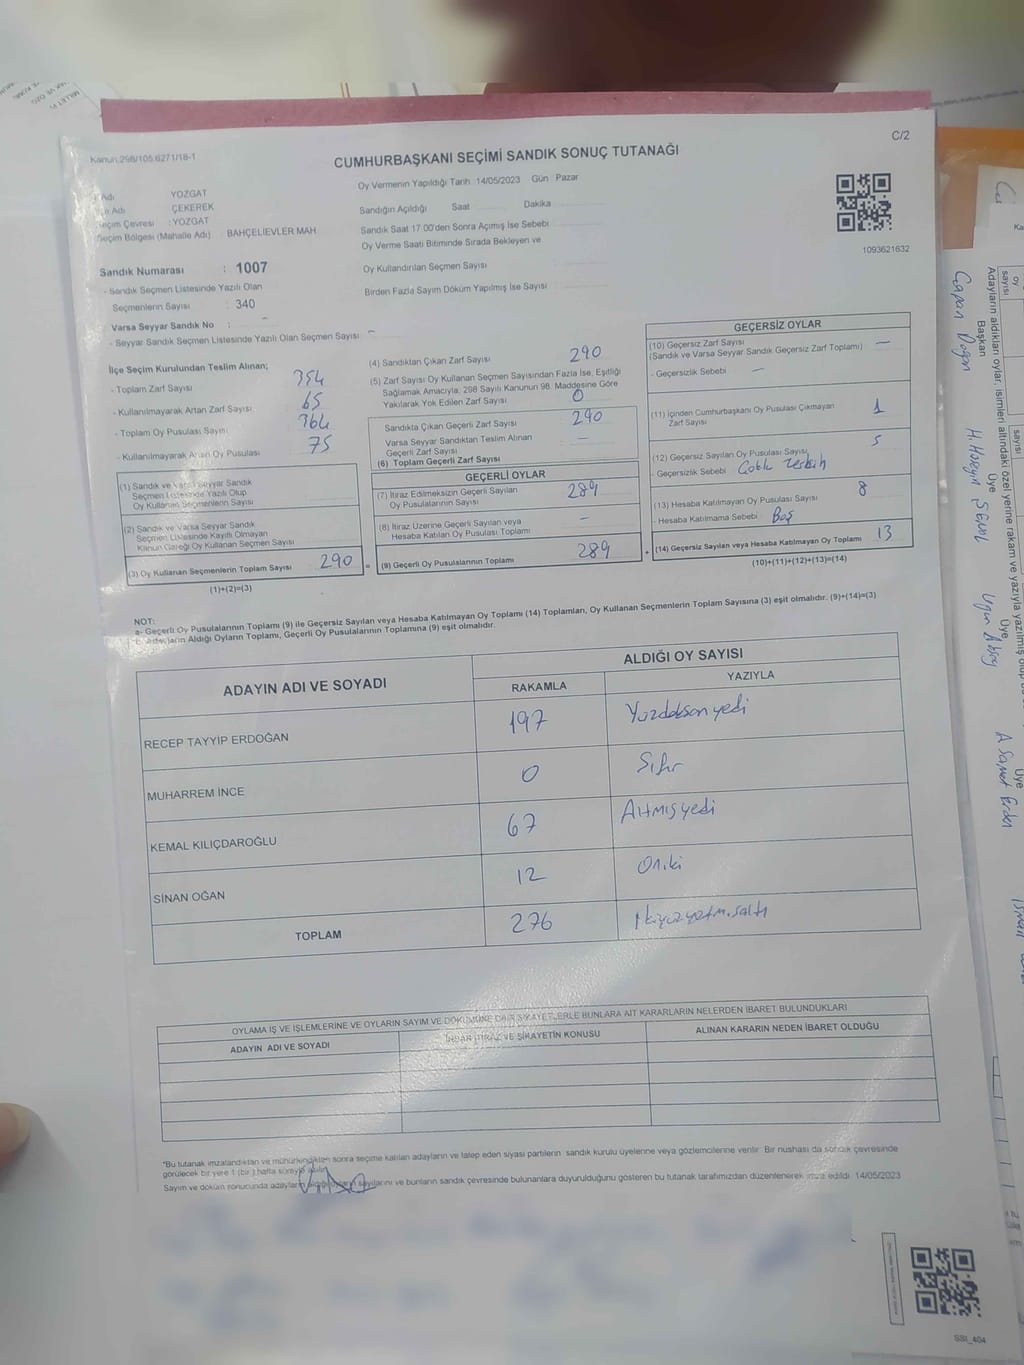 C/2
Kanun.298/105.6271/18-1
CUMHURBAŞKANI SEÇİMİ SANDIK SONUÇ TUTANAĞI
Adı YOZGAT
Adı ÇEKEREK
Seçim Çevresi : YOZGAT
Seçim Bölgesi (Mahalle Adı) : BAHÇELİEVLER MAH
Sandık Numarası : 1007
- Sandık Seçmen Listesinde Yazılı Olan
Seçmenlerin Sayısı : 340
Varsa Seyyar Sandık No : –
- Seyyar Sandık Seçmen Listesinde Yazılı Olan Seçmen Sayısı : –
Oy Vermenin Yapıldığı Tarih 14/05/2023 Gün Pazar
Sandığın Açıldığı Saat Dakika
Sandık Saat 17.00'den Sonra Açımış İse Sebebi
Oy Verme Saati Bitiminde Sırada Bekleyen ve
Oy Kullandırılan Seçmen Sayısı
Birden Fazla Sayım Döküm Yapılmış İse Sayısı
1093621632
İlçe Seçim Kurulundan Teslim Alınan;
- Toplam Zarf Sayısı 354
- Kullanılmayarak Artan Zarf Sayısı 65
- Toplam Oy Pusulası Sayısı 364
- Kullanılmayarak Artan Oy Pusulası 75
(1) Sandık ve Varsa Seyyar Sandık
Seçmen Listesinde Yazılı Olup
Oy Kullanan Seçmenlerin Sayısı
(2) Sandık ve Varsa Seyyar Sandık
Seçmen Listesinde Kayıtlı Olmayan
Kanun Gereği Oy Kullanan Seçmen Sayısı
(3) Oy Kullanan Seçmenlerin Toplam Sayısı 290
(1)+(2)=(3)
(4) Sandıktan Çıkan Zarf Sayısı 290
(5) Zarf Sayısı Oy Kullanan Seçmen Sayısından Fazla İse, Eşitliği
Sağlamak Amacıyla; 298 Sayılı Kanunun 98. Maddesine Göre
Yakılarak Yok Edilen Zarf Sayısı 0
Sandıkta Çıkan Geçerli Zarf Sayısı : 290
Varsa Seyyar Sandıktan Teslim Alınan
Geçerli Zarf Sayısı : —
(6) Toplam Geçerli Zarf Sayısı
GEÇERLİ OYLAR
(7) İtiraz Edilmeksizin Geçerli Sayılan
Oy Pusulalarının Sayısı : 289
(8) İtiraz Üzerine Geçerli Sayılan veya
Hesaba Katılan Oy Pusulası Toplamı —
(9) Geçerli Oy Pusulalarının Toplamı 289
GEÇERSİZ OYLAR
(10) Geçersiz Zarf Sayısı
(Sandık ve Varsa Seyyar Sandık Geçersiz Zarf Toplamı) —
- Geçersizlik Sebebi : —
(11) İçinden Cumhurbaşkanı Oy Pusulası Çıkmayan
Zarf Sayısı 1
(12) Geçersiz Sayılan Oy Pusulası Sayısı 5
- Geçersizlik Sebebi
(13) Hesaba Katılmayan Oy Pusulası Sayısı 8
- Hesaba Katılmama Sebebi : Boş
(14) Geçersiz Sayılan veya Hesaba Katılmayan Oy Toplamı 13
(10)+(11)+(12)+(13)=(14)
NOT:
a- Geçerli Oy Pusulalarının Toplamı (9) ile Geçersiz Sayılan veya Hesaba Katılmayan Oy Toplamı (14) Toplamları, Oy Kullanan Seçmenlerin Toplam Sayısına (3) eşit olmalıdır. (9)+(14)=(3)
b- Adayların Aldığı Oyların Toplamı, Geçerli Oy Pusulalarının Toplamına (9) eşit olmalıdır.
ADAYIN ADI VE SOYADI ALDIĞI OY SAYISI
RAKAMLA YAZIYLA
RECEP TAYYIP ERDOĞAN 197 Yüzdoksanyedi
MUHARREM İNCE 0 Sıfır
KEMAL KILIÇDAROĞLU 67 Altmışyedi
SİNAN OĞAN 12 Oniki
TOPLAM 276 İkiyüzyetmişaltı
OYLAMA İŞ VE İŞLEMLERİNE VE OYLARIN SAYIM VE DÖKÜMÜNE DAİR ŞİKAYETLERLE BUNLARA AİT KARARLARIN NELERDEN İBARET BULUNDUKLARI
ADAYIN ADI VE SOYADI İHBAR İTİRAZ VE ŞİKAYETİN KONUSU ALINAN KARARIN NEDEN İBARET OLDUĞU
*Bu tutanak imzalandıktan ve mühürlendikten sonra seçime katılan adayların ve talep eden siyasi partilerin sandık kurulu üyelerine veya gözlemcilerine verilir. Bir nüshası da sandık çevresinde
görülecek bir yere 1 (bir) hafta süreyle asılır.
Sayım ve döküm sonucunda adayların aldığı oyların sayılarını ve bunların sandık çevresinde bulunanlara duyurulduğunu gösteren bu tutanak tarafımızdan düzenlenerek imza edildi. 14/05/2023
SSI_404
Adayların aldıkları oylar, isimleri altındaki özel yerine rakam ve yazıyla yazılmış
Başkan
Üye
Üye
Üye
oy
sayısı
sayısı